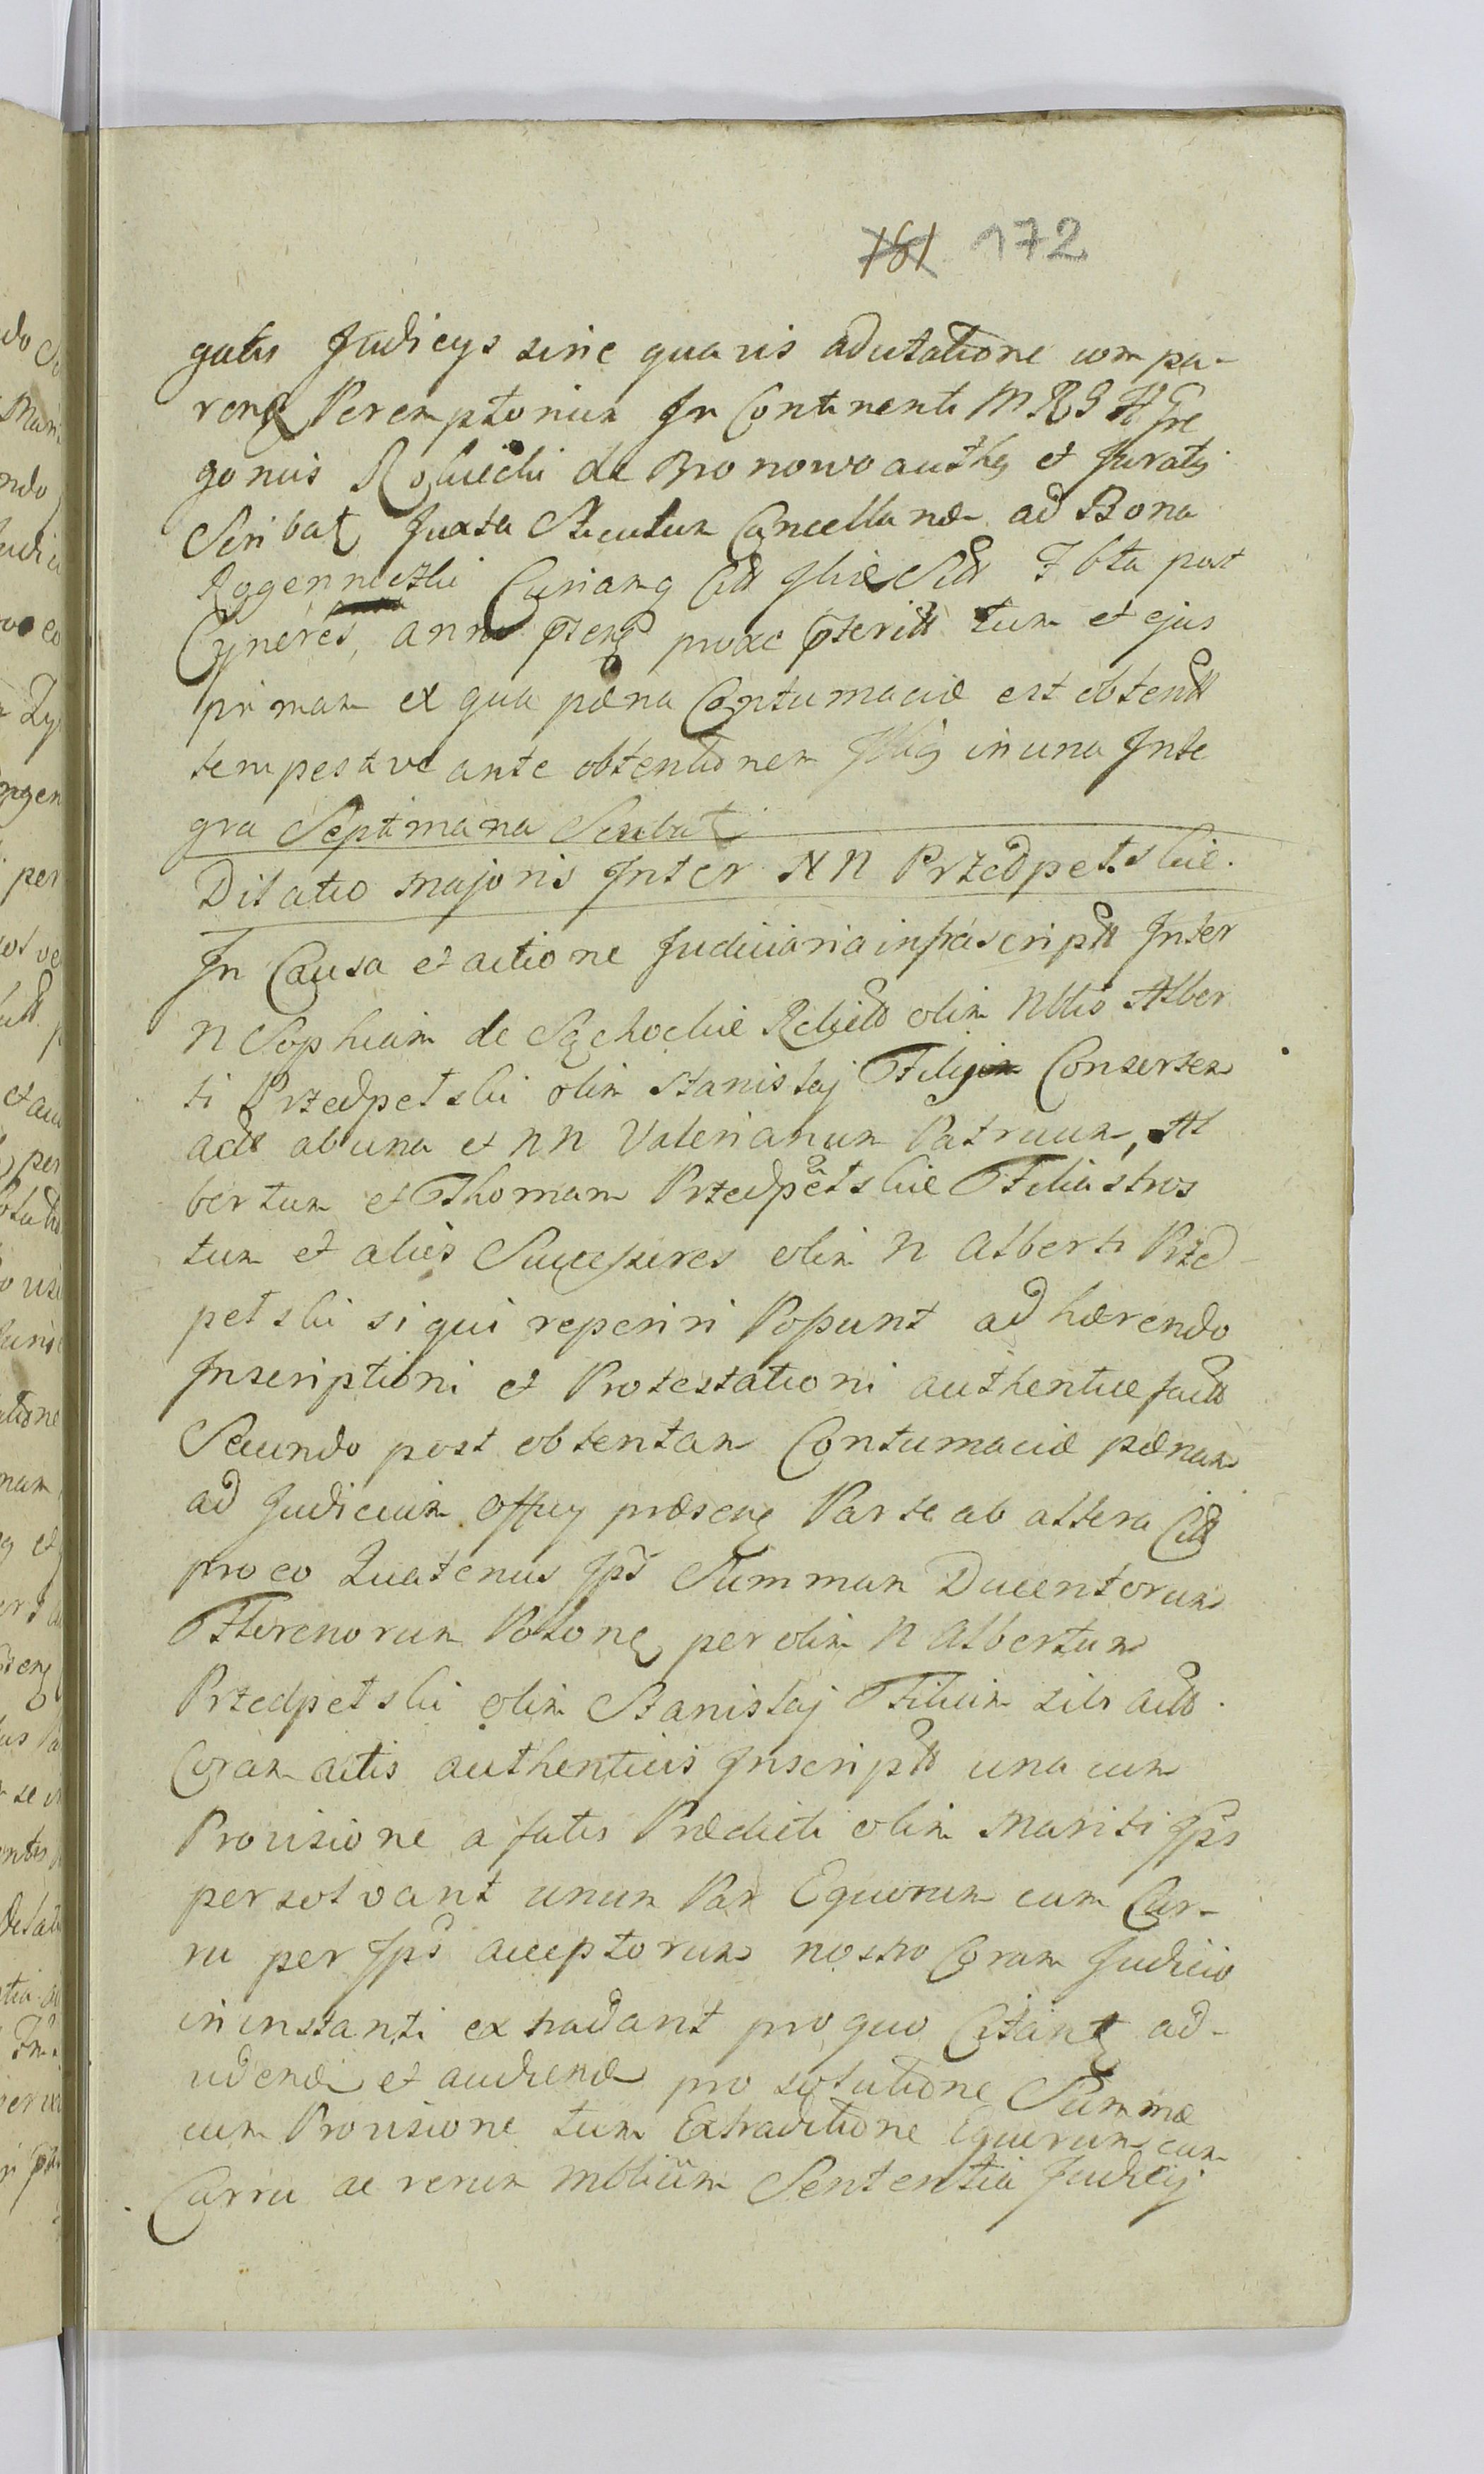 161 172
gatis Judicys sine quavis adcitatione compa-
ren Peremptorium In Continenti M R G H Gre
gorius de Bronowo auth et Jurat
Scribat Juxta Cancellariæ ad Bona
Curiam post
Cyneres, anno proxe tum et ejus
primam ex qua pæna Contumaciæ est obtent
tempestive ante obtentionem in una Inte
gra Septimana Scribat
Dilatio majoris Inter N N Przedpełskie.
In Causa et actione Judiciaria infrascript Inter
N Sophiam de Relict olim Nblis Alber
ti Przedpełski olim Stanislaj Filij Consorten
act ab una et N N Valerianum Patruum, Al
bertum et Thomam Przedpełskie Filiastros
tum et alios Successores olim N Alberti Przed-
pełski si qui reperiri Possunt adhærendo
Inscriptioni et Protestationi authentice fact
Secundo post obtentam Contumaciæ pænam
ad Judicium Officij præsens Parte ab altera Cit
pro eo Quatenus Ips Summam Ducentorum
Florenorum Polon per olim N Albertum
Przedpełski olim Stanislaj Filium sibi act
Coram actis authenticis Inscript una cum
Provisione a fatis Prædicti olim Mariti Ips
persolvant unum Par Equorum cum Cur-
ru per Ips acceptorum nostro Coram Judicio
in instanti extradant pro quo Citant ad-
vidend et audiend pro solutione Summæ
cum Provisione tum Extraditione Equorum cum
Curru ac rerum mblium Sententia Judicij